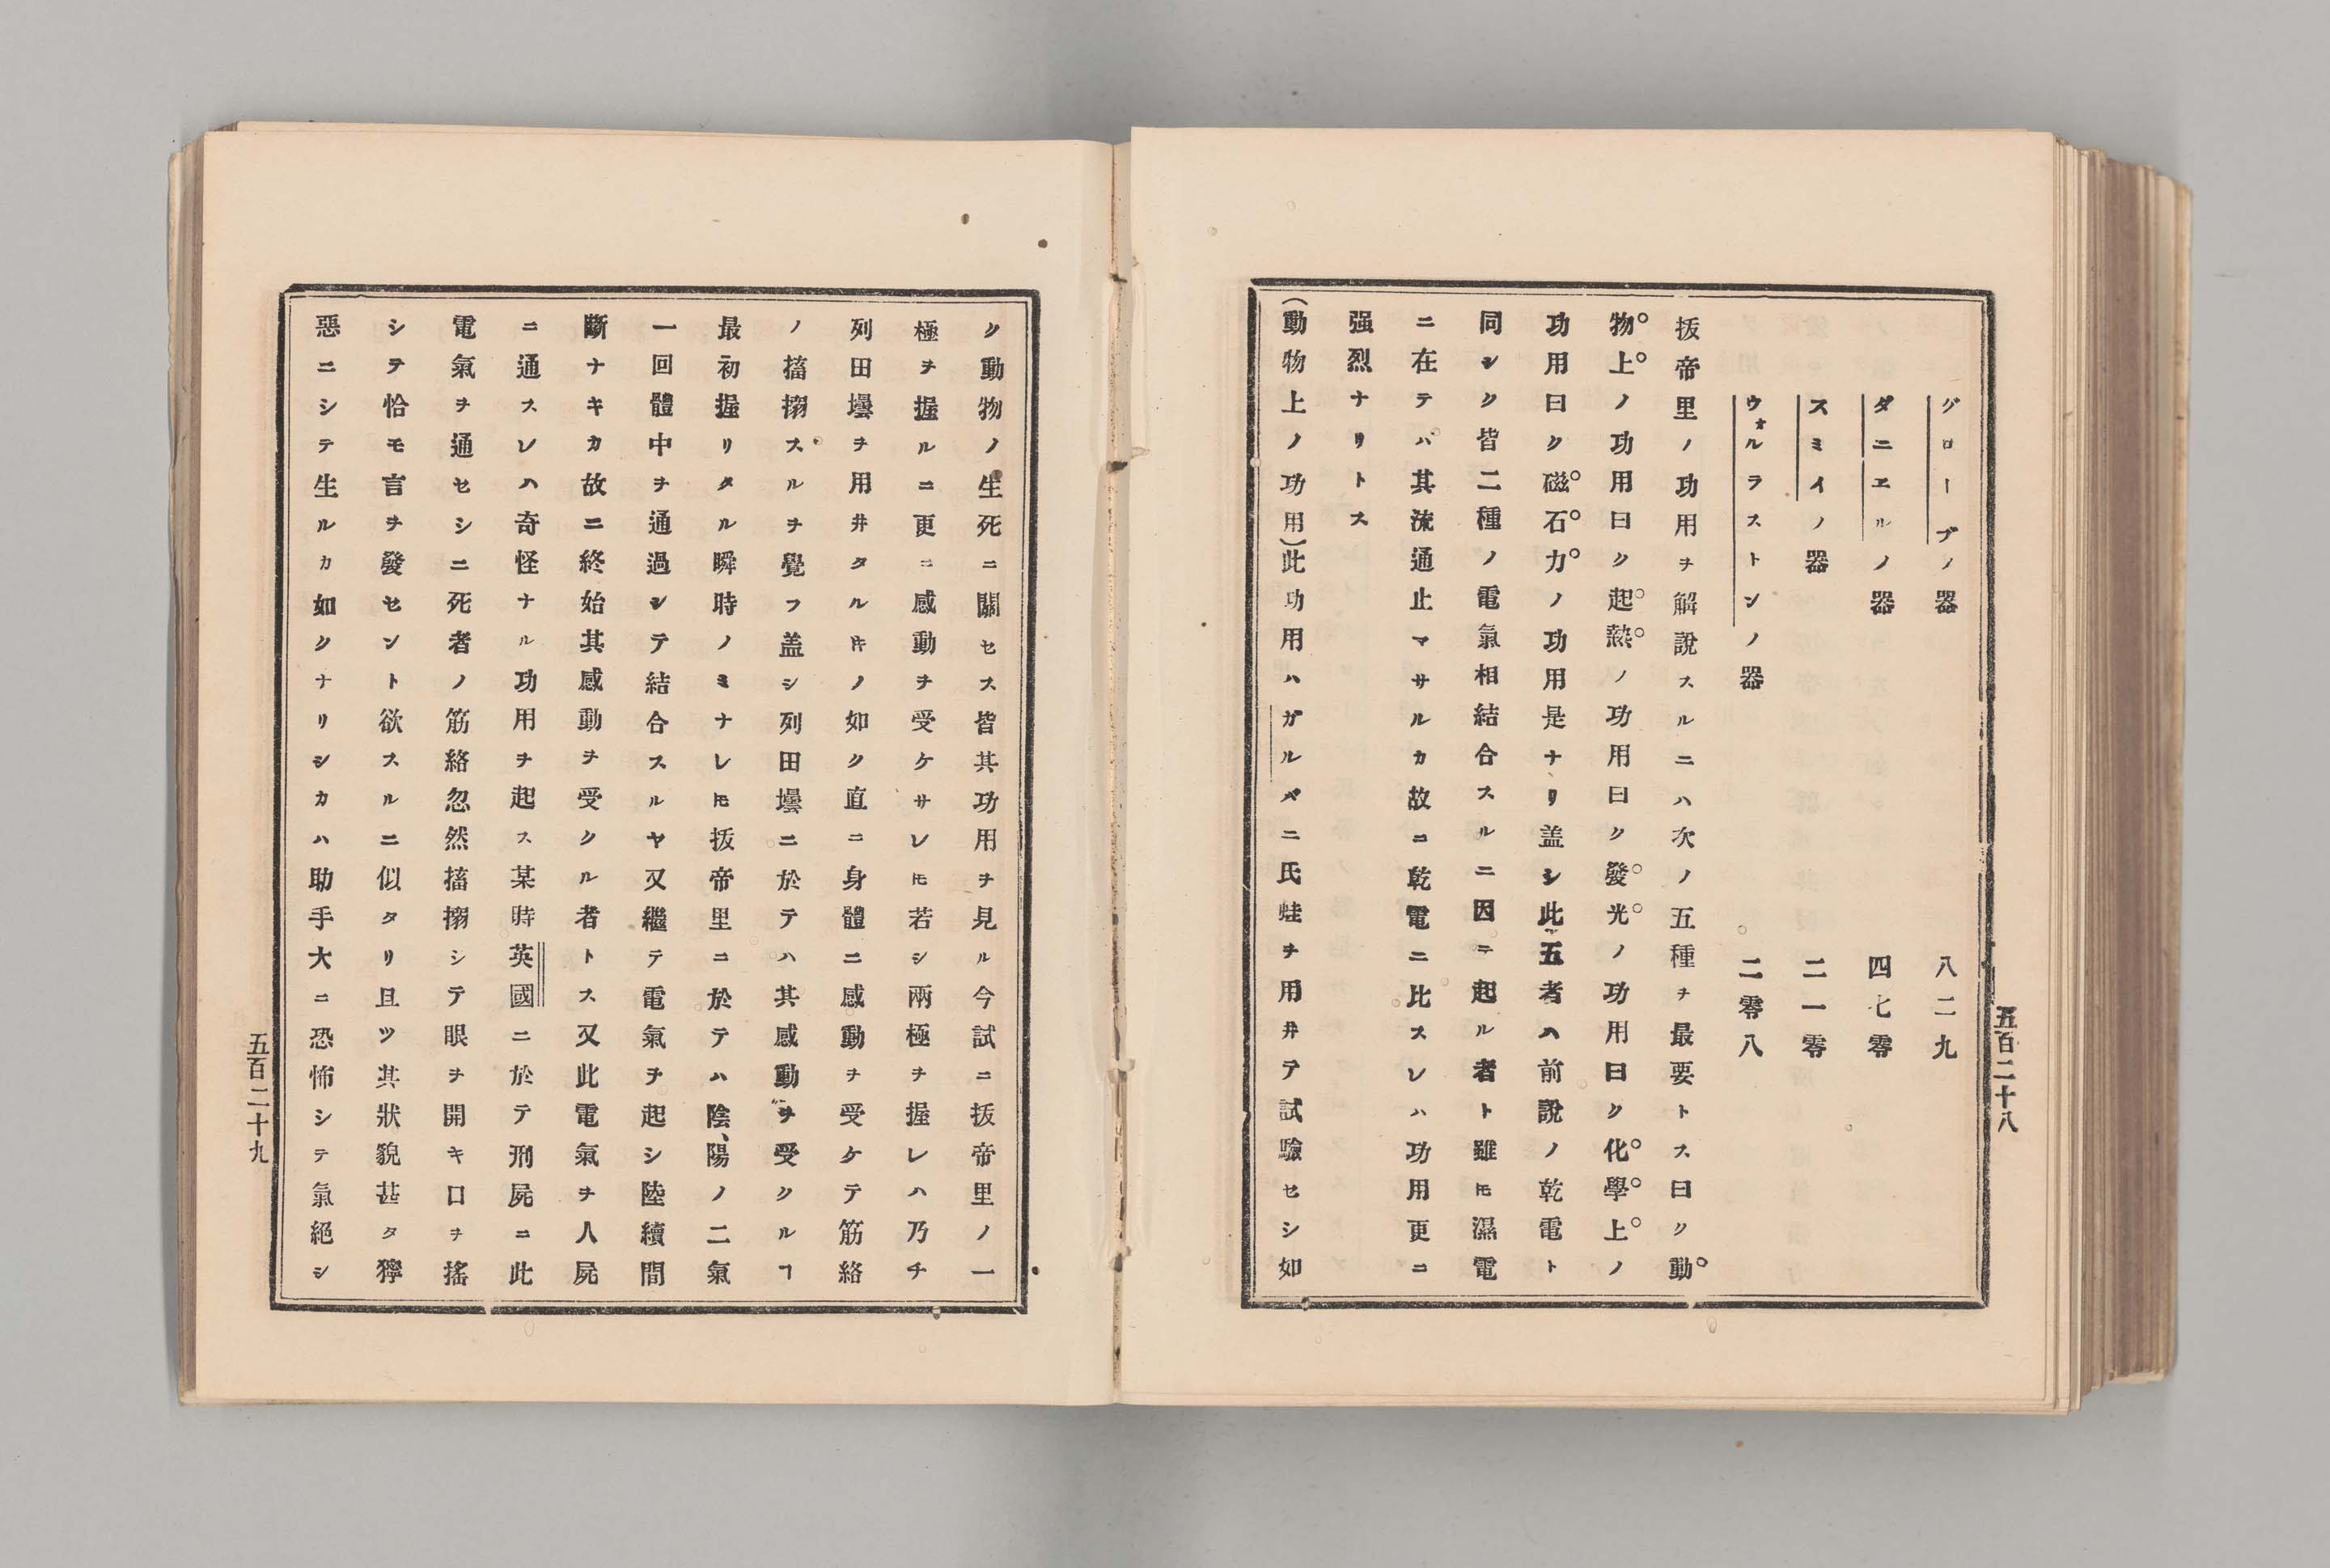 グローブノ器 八二九
ダニエルノ器 四七零
スミイノ器 二一零
ウォルラストンノ器 二零八
扳帝里ノ功用ヲ解說スルニハ次ノ五種ヲ最要トス曰ク動
物上ノ功用曰ク起熱ノ功用曰ク發光ノ功用曰ク化學上ノ
功用曰ク磁石力ノ功用是ナリ盖シ此五者ハ前說ノ乾電ト
同シク皆二種ノ電氣相結合スルニ因テ起ル者ト雖𪜈濕電
ニ在テハ其流通止マサルカ故ニ乾電ニ比スレハ功用更ニ
强烈ナリトス
(動物上ノ功用)此功用ハガルメニ氏蛙ヲ用井テ試驗セシ如
五百二十八
ク動物ノ生死ニ關セス皆其功用ヲ見ル今試ニ扳帝里ノ一
極ヲ握ルニ更ニ感動ヲ受ケサレ𪜈若シ兩極ヲ握レハ乃チ
列田壜ヲ用井タルキノ如ク直ニ身體ニ感動ヲ受ケテ筋絡
ノ搐搦スルヲ覺フ盖シ列田壜ニ於テハ其感動ヲ受クルヿ
最初握リタル瞬時ノミナレ𪜈扳帝里ニ於テハ陰、陽ノ二氣
一回體中ヲ通過シテ結合スルヤ又繼テ電氣ヲ起シ陸續間
斷ナキカ故ニ終始其感動ヲ受クル者トス又此電氣ヲ人屍
ニ通スレハ奇怪ナル功用ヲ起ス某時英國ニ於テ刑屍ニ此
電氣ヲ通セシニ死者ノ筋絡忽然搐搦シテ眼ヲ開キ口ヲ搖
シテ恰モ言ヲ發セント欲スルニ似タリ且ツ其狀貌甚タ獰
惡ニシテ生ルカ如クナリシカハ助手大ニ恐怖シテ氣絕シ
五百二十九